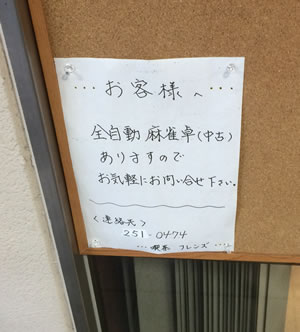 ...お客様へ....
全自動麻雀卓(中古)
ありますので
お気軽にお問い合せ下さい。
<連絡先>
251-0474
...喫茶 フレンズ....